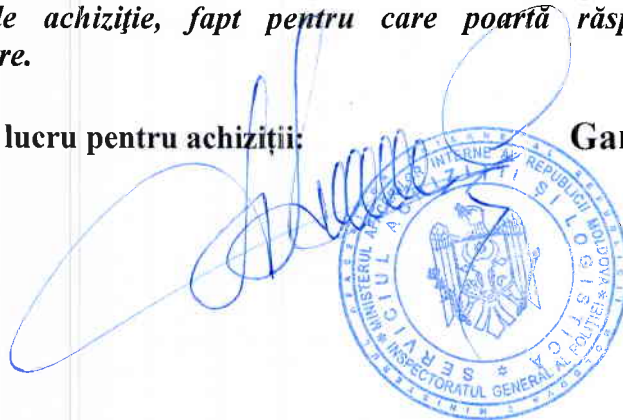 de achiziţie, fapt pentru care poartă răsp
re.
lucru pentru achiziții:
Gar
MINISTERUL AFACERILOR INTERNE AL REPUBLICII MOLDOVA
INSPECTORATUL GENERAL AL POLIȚIEI
SERVICIUL ACHIZIȚII ȘI LOGISTICĂ